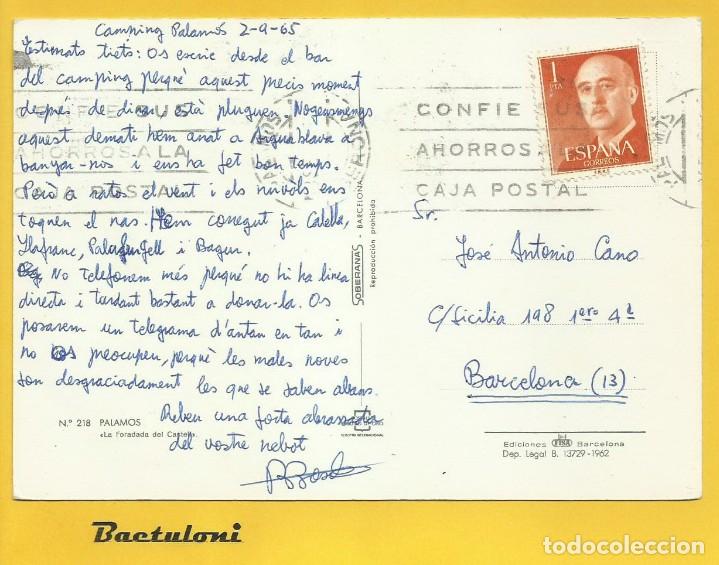 Camping Palamós 2-9-65
Estimats tiets: Os escric desde el bar
del camping perquè aquest precis moment
després de dinar està pluguen. Nogensmenys
aquest demati hem anat a Aiguablava a
banyar-nos i ens ha fet bon temps.
Però a ratos el vent i els núvols ens
toquen el nas. Hem conegut ja Calella,
Llafranc, Palafrugell i Bagur.
No telefonem més perquè no hi ha linea
directa i tardant bastant a donar-la. Os
posarem un telegrama d'antan en tan i
no os preocupeu, perquè les males noves
son desgraciadament les que se saben abans.
Rebeu una forta abraçada
del vostre nebot
N.º 218 PALAMOS
«La Foradada del Castell»
SOBERANAS - BARCELONA
Reproducción prohibida
CONFIE SUS
AHORROS A LA
CAJA POSTAL
CONFIE SUS
AHORROS A LA
CAJA POSTAL
1
PTA
ESPAÑA
CORREOS
Sr.
José Antonio Cano
C/Sicilia 198 1ero 4ª
Barcelona (13)
Ediciones FISA Barcelona
Dep. Legal B. 13729-1962
Baetuloni
todocoleccion.net